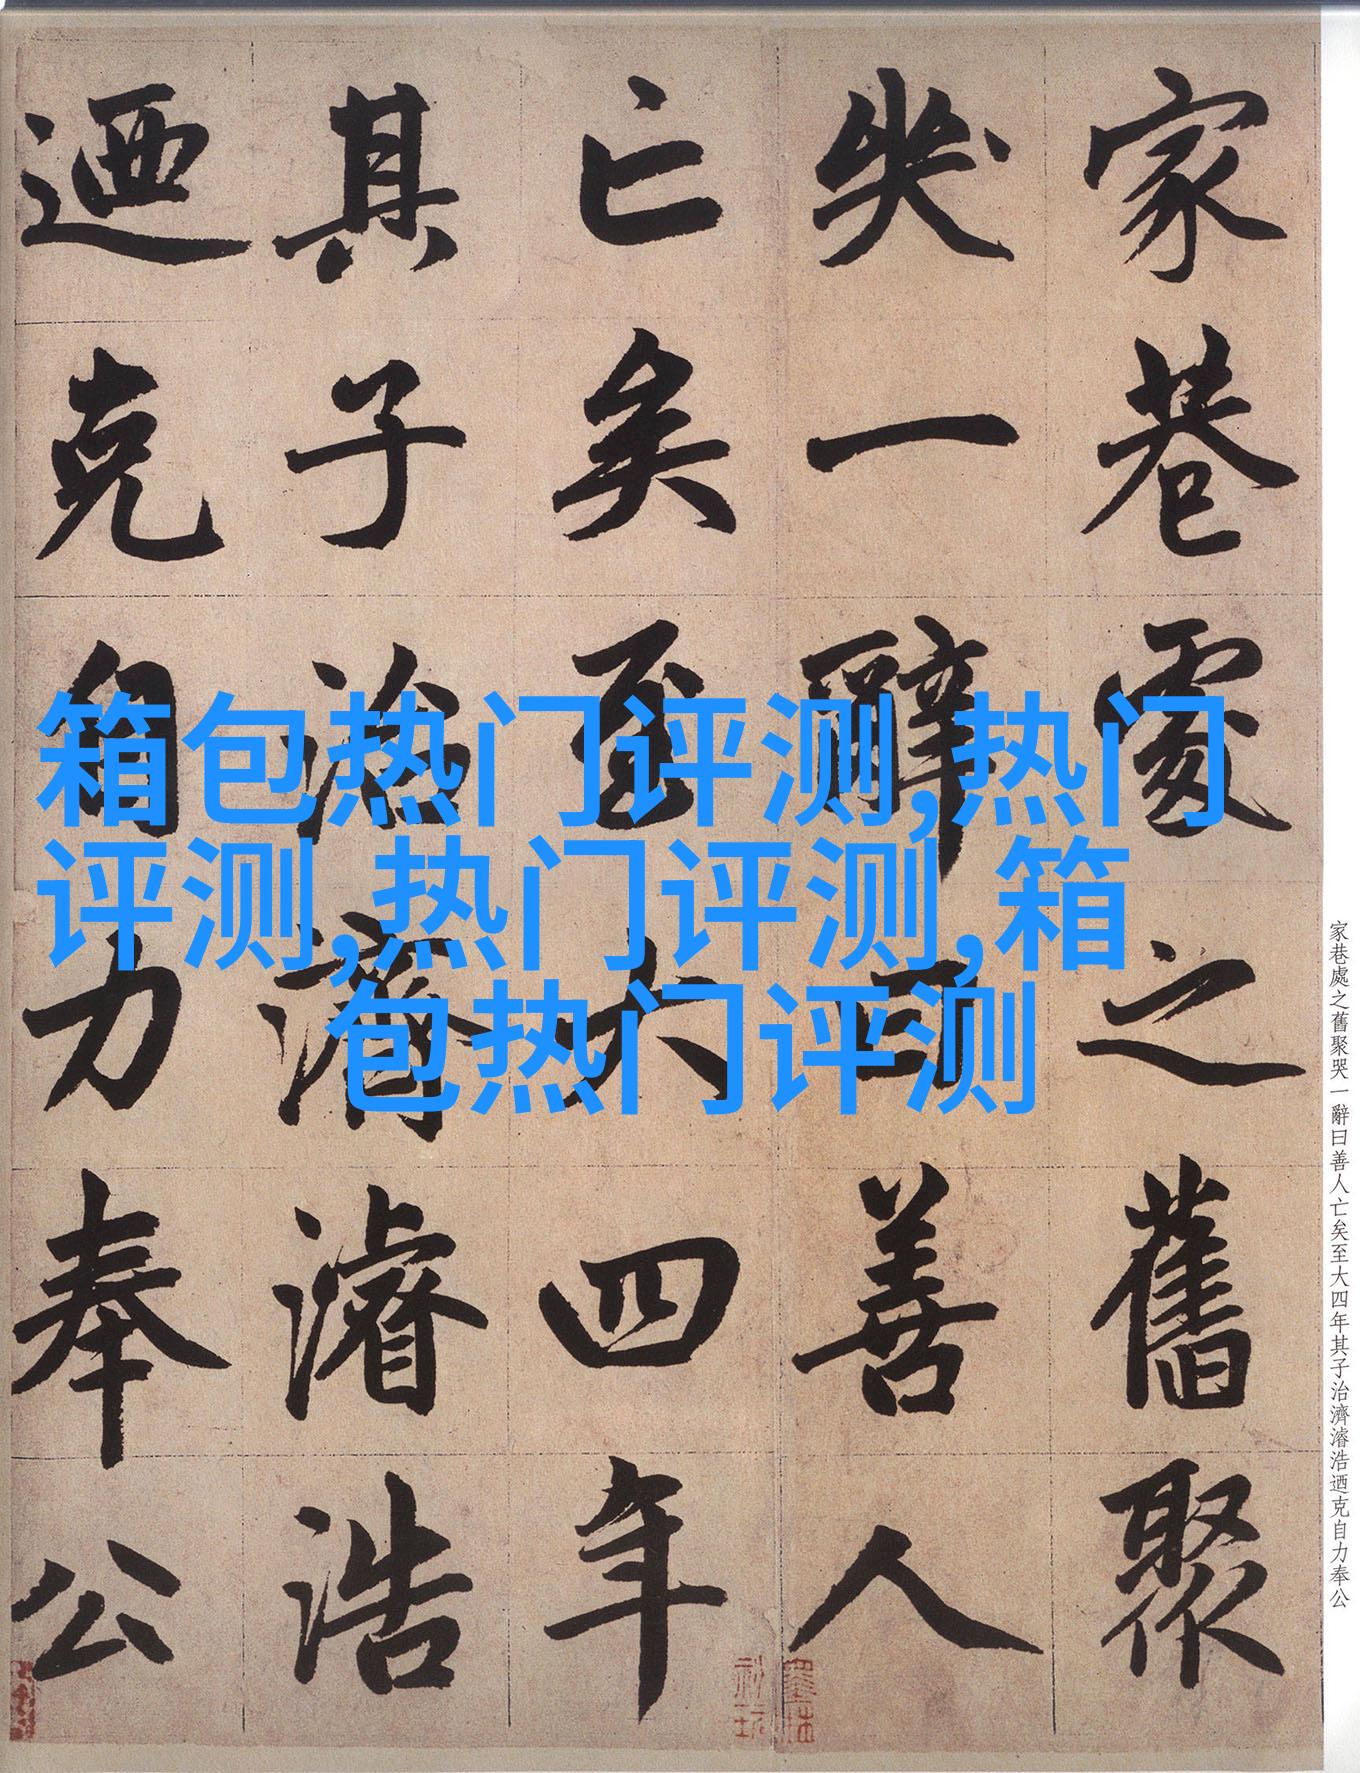 家巷處之舊聚
哭一辭曰善人
亡矣至大四年
其子治濟濬浩
迺克自力奉公
箱包热门评测,热门
评测,热门评测,箱
包热门评测
家巷處之舊聚哭一辭曰善人亡矣至大四年其子治濟濬浩迺克自力奉公